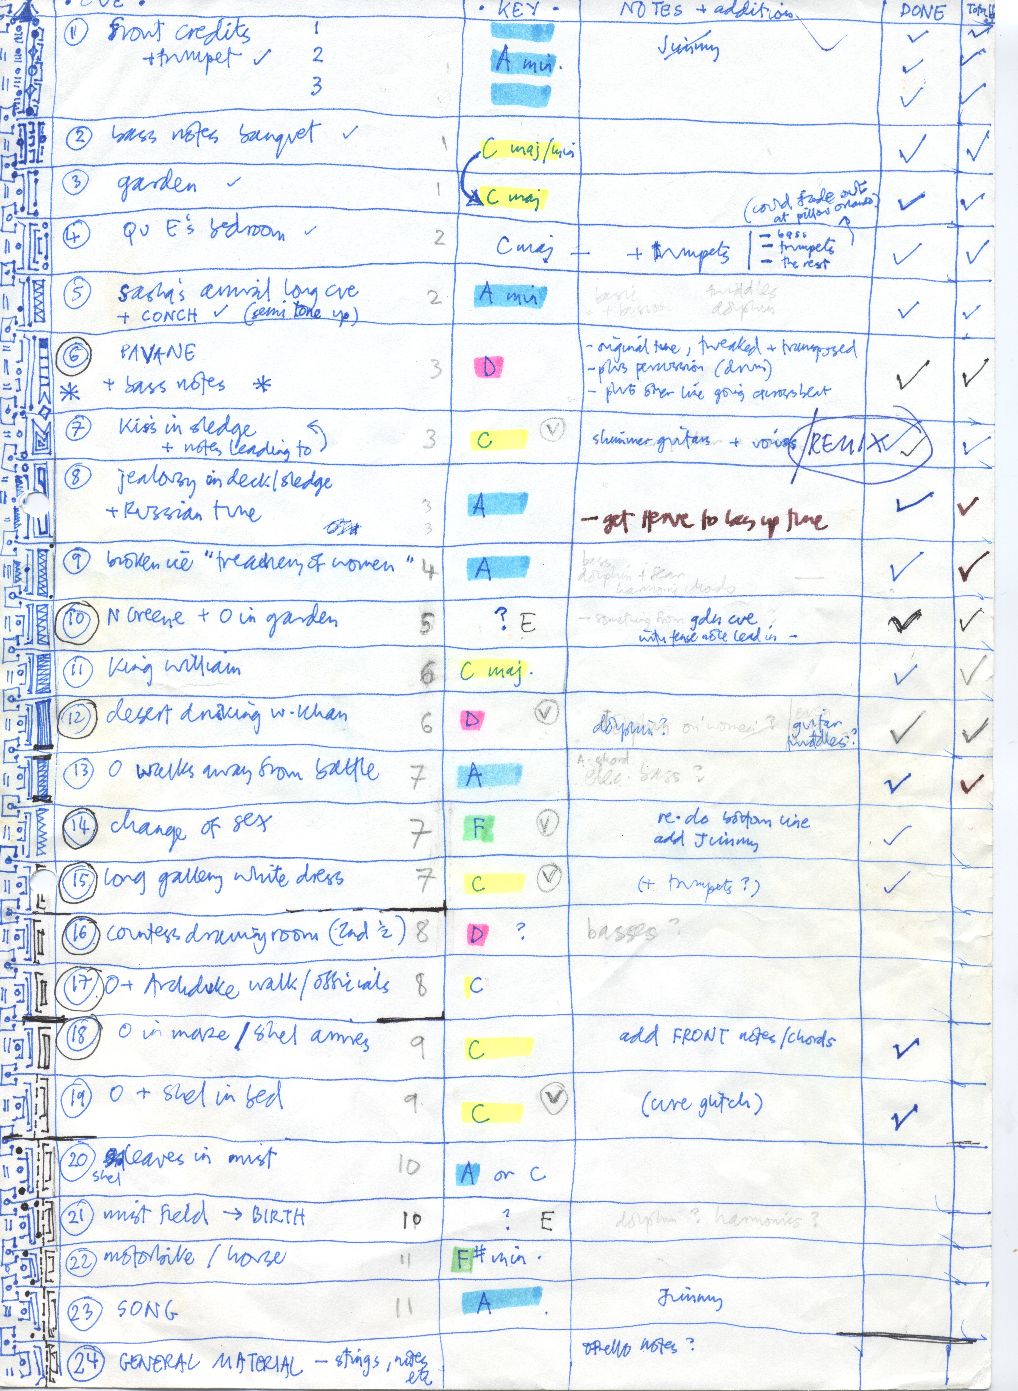 · CUE · · KEY · NOTES + additions DONE
① front credits 1 Jimmy ✓
+ trumpet ✓ 2 A min. ✓
3 ✓
② bass notes banquet ✓ 1 C maj/min ✓ ✓
③ garden ✓ 1 C maj ✓ ✓
(could fade out
at pillow
④ QU E's bedroom ✓ 2 C maj — + trumpets — bass
— trumpets
— the rest
⑤ Sasha's arrival long cue 2 A min
+ CONCH ✓ (semi tone up) ✓ ✓
⑥ PAVANE 3 D - original tune, tweaked + transposed
* + bass notes * - plus percussion (drum) ✓ ✓
- plus other line going across beat
⑦ Kiss in sledge 3 C ✓ shimmer guitars + voices /REMIX ✓ ✓
+ notes leading to
⑧ jealousy in deck/sledge 3 A ✓ ✓
+ Russian tune 3 - get Herve to lay up tune
⑨ broken cue "treachery of women" 4 A ✓ ✓
bass
dolphin +
harmonic chords
⑩ N Greene + O in garden 5 ? E - something from gdn cue ✓ ✓
with tense note lead in -
⑪ King William 6 C maj. ✓ ✓
⑫ desert drinking w. Khan 6 D ✓ dolphin? guitar ✓ ✓
twiddles?
⑬ O walks away from battle 7 A A chord ✓ ✓
elec. bass ?
⑭ change of sex 7 F ✓ re-do bottom line ✓
add Jimmy
⑮ long gallery white dress 7 C ✓ (+ trumpets?) ✓
⑯ countess drawing room (2nd ½) 8 D ? basses ?
⑰ O + Archduke walk/officials 8 C
⑱ O in maze / Shel arrives 9 C add FRONT notes/chords ✓
⑲ O + Shel in bed 9 C ✓ (cure glitch) ✓
⑳ leaves in mist 10 A or C
shel
㉑ mist field → BIRTH 10 ? E dolphin ? harmonics ?
㉒ motorbike / horse 11 F# min.
㉓ SONG 11 A . Jimmy
㉔ GENERAL MATERIAL - strings, notes
etc
notes ?